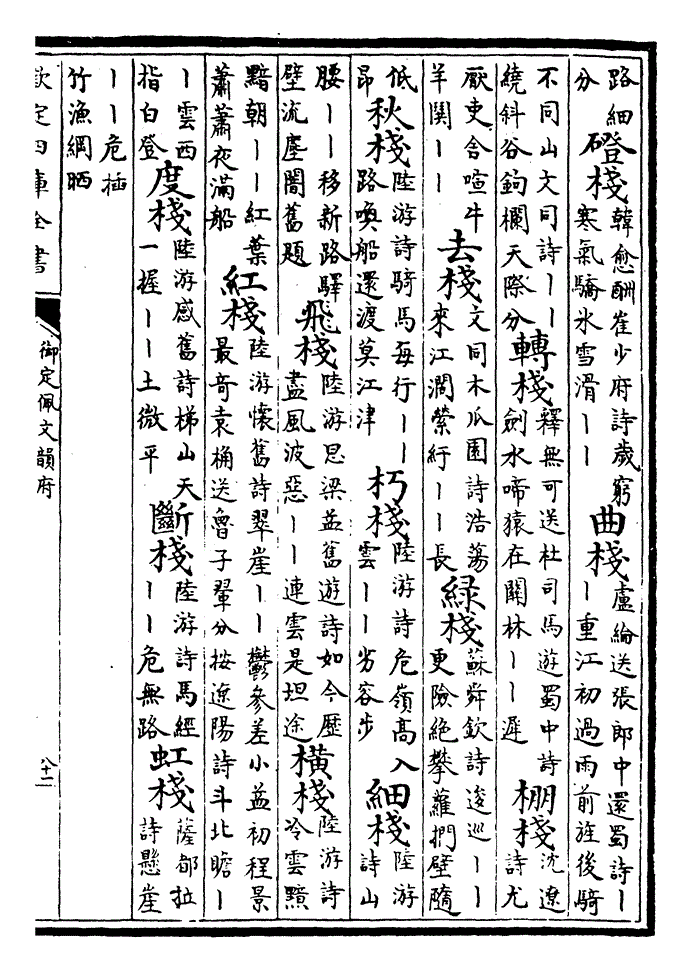 路細分　磴棧韓愈酬崔少府詩歲窮寒氣驕氷雪滑丨丨　曲棧盧綸送張郎中還蜀詩丨丨重江初過雨前旌後騎
不同山文同詩丨丨繞斜谷鉤欄天際分　轉棧釋無可送杜司馬遊蜀中詩劍水啼猿在關林丨丨遲　棚棧沈遼詩尤
厭吏舍喧牛羊鬨丨丨　去棧文同木瓜園詩浩蕩來江濶縈紆丨丨長　緑棧蘇舜欽詩逡巡丨丨更險絶攀蘿捫壁隨
低昂　秋棧陸游詩騎馬每行丨丨路喚船還渡莫江津　朽棧陸游詩危嶺高入雲丨丨劣容步　細棧陸游詩山
腰丨丨移新路驛壁流塵闇舊題　飛棧陸游思梁益舊遊詩如今歷盡風波惡丨丨連雲是坦途　橫棧陸游詩冷雲黯
黯朝丨丨紅葉蕭蕭夜滿船　紅棧陸游懷舊詩翠崖丨丨鬱參差小益初程景最奇袁桷送魯子翬分按遼陽詩斗北瞻丨
丨雲西指白登　度棧陸游感舊詩梯山天一握丨丨土微平　斷棧陸游詩馬經丨丨危無路　虹棧薩都拉詩懸崖
丨丨危插竹漁網晒
欽定四庫全書
御定佩文韻府
八十二